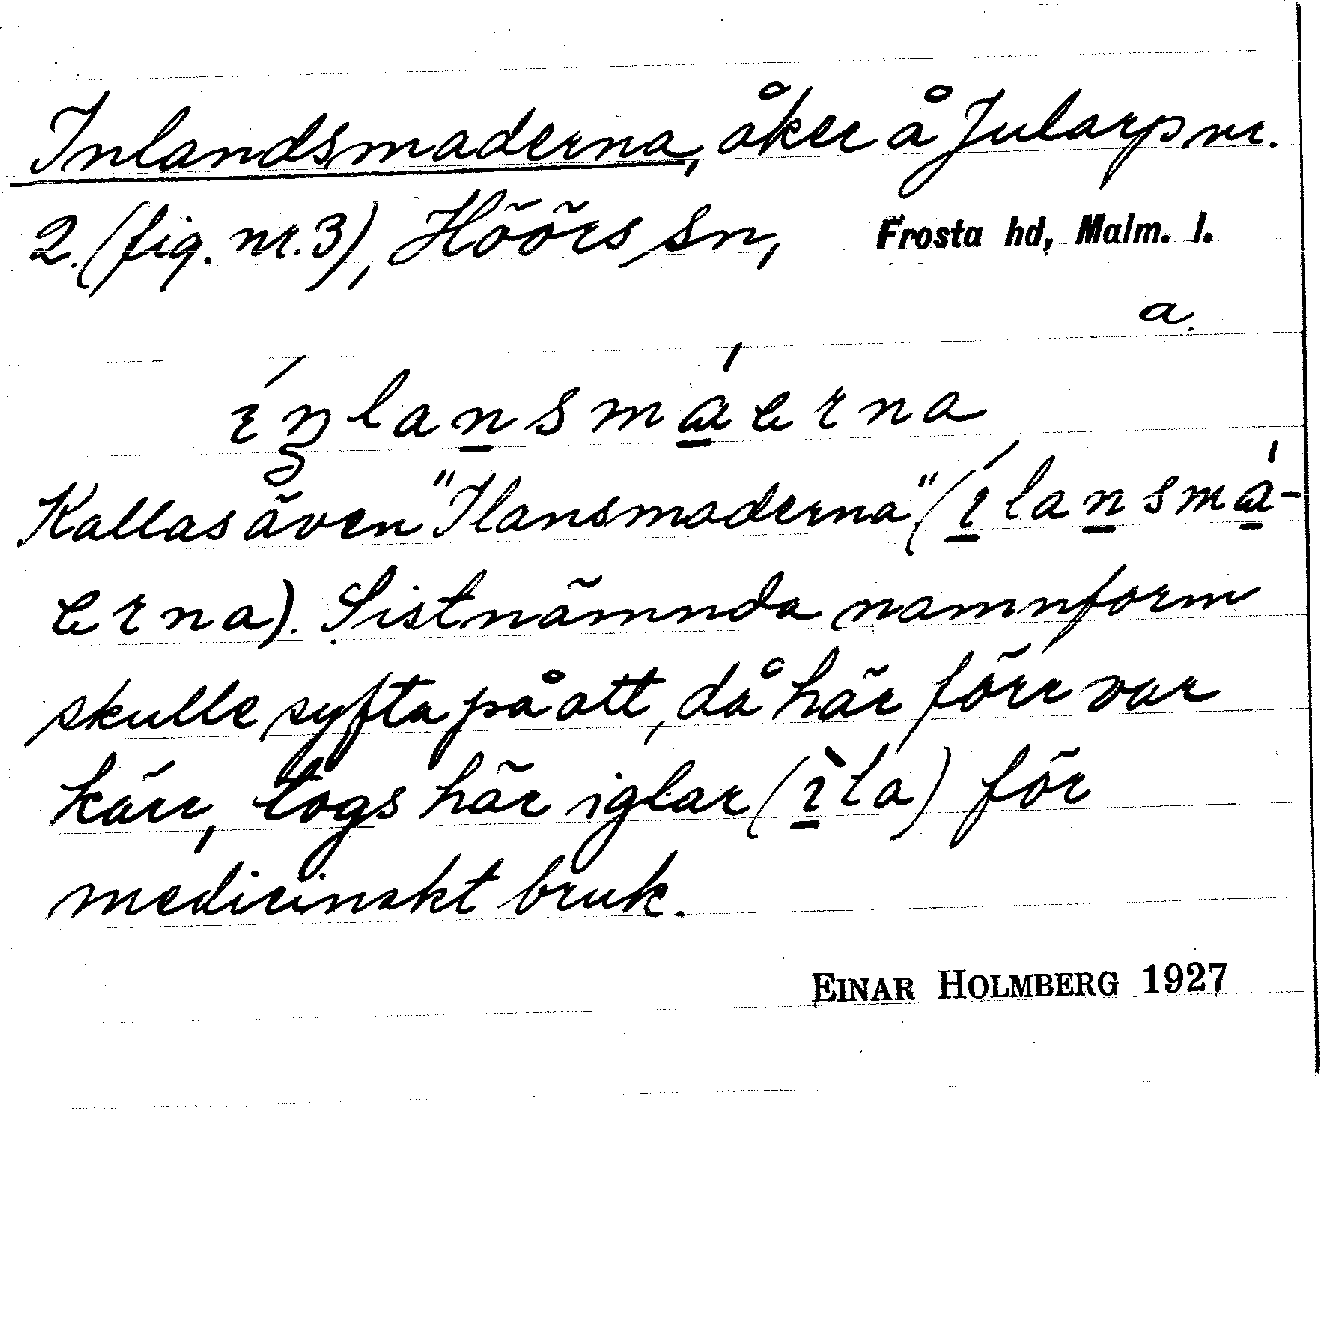 Inlandsmaderna, åker å Jularp nr.
2. (fig. nr. 3), Höörs sn, Frosta hd, Malm. l.
a.
ínlansmáerna
Kallas även "Ilansmaderna" (ílansmá-
erna). Sistnämnda namnform
skulle syfta på att, då här förr var
kärr, togs här iglar (ìla) för
medicinskt bruk.
EINAR HOLMBERG 1927